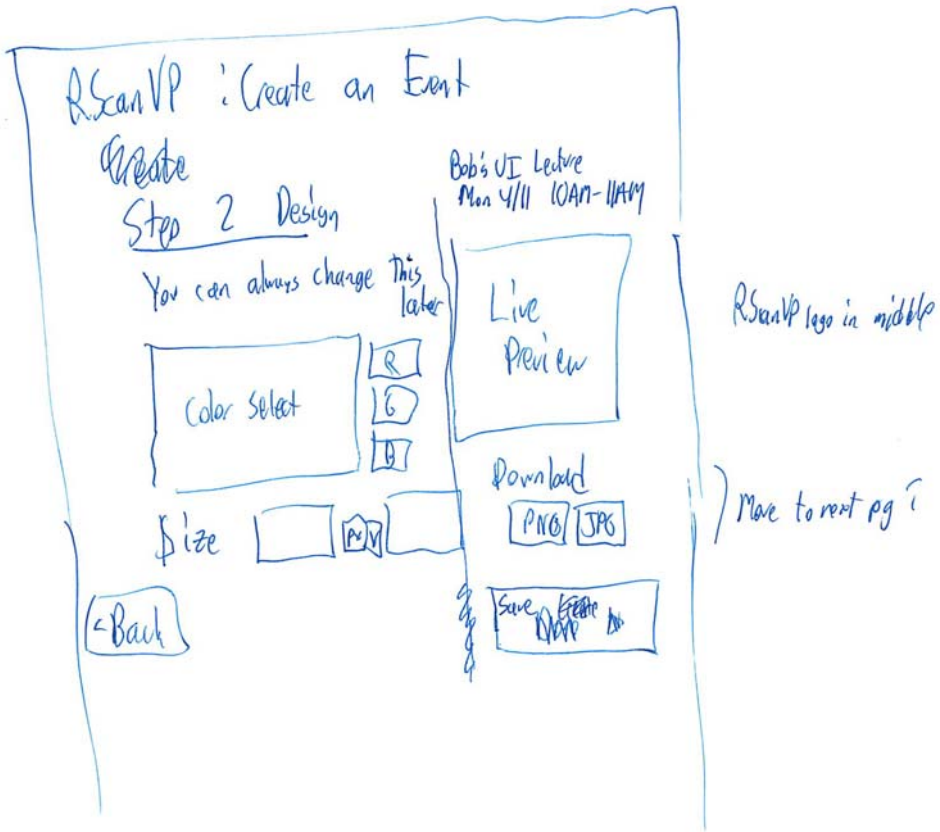 RScanVP : Create an Event
Create
Step 2 Design
You can always change this
later
Color Select
R
G
B
Size
px
<Back
Bob's UI Lecture
Mon 4/11 10AM-11AM
Live
Preview
Download
PNG JPG
Save
RScanVP logo in middle
Move to next pg ?